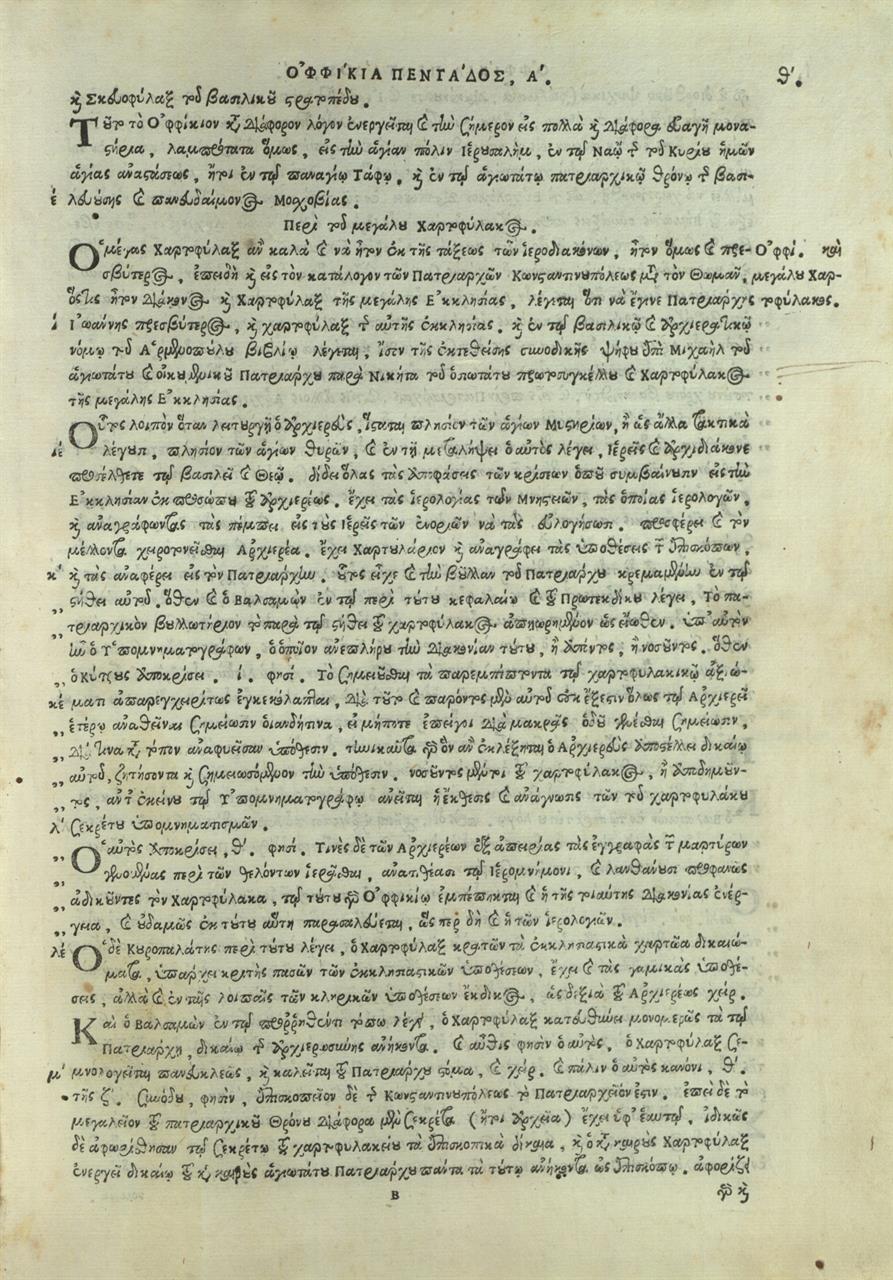 ΟΦΦΙΚΙΑ ΠΕΝΤΑΔΟΣ, Α΄. θ΄.
καὶ Σκευοφύλαξ τοῦ βασιλικοῦ στρατοπέδου.
Τοῦτο τὸ Ὀφφίκιον κατὰ διάφορον λόγον ἐνεργεῖται καὶ τὴν σήμερον εἰς πολλὰ καὶ διάφορα εὐαγῆ μονα-
στήρια, λαμπρότατα ὅμως, εἰς τὴν ἁγίαν πόλιν Ἱερουσαλὴμ, ἐν τῷ Ναῷ τῆς τοῦ Κυρίου ἡμῶν
ἁγίας ἀναστάσεως, ἤτοι ἐν τῷ παναγίῳ Τάφῳ, καὶ ἐν τῷ ἁγιωτάτῳ πατριαρχικῷ θρόνῳ τῆς βασι-
έ λευούσης καὶ πανευδαίμονος Μοσχοβίας.
Περὶ τοῦ μεγάλου Χαρτοφύλακος.
Ὁ μέγας Χαρτοφύλαξ ἂν καλὰ καὶ νὰ ἦτον ἐκ τῆς τάξεως τῶν ἱεροδιακόνων, ἦτον ὅμως καὶ πρε-
Ὀφφί. καὶ
σβύτερος, ἐπειδὴ καὶ εἰς τὸν κατάλογον τῶν Πατριαρχῶν Κωνσταντινουπόλεως μετὰ τὸν Θωμᾶν,
μεγάλου Χαρ-
ὅστις ἦτον διάκονος καὶ Χαρτοφύλαξ τῆς μεγάλης Ἐκκλησίας, λέγεται ὅτι νὰ ἔγινε Πατριάρχης
τοφύλακος.
ί Ἰωάννης πρεσβύτερος, καὶ χαρτοφύλαξ τῆς αὐτῆς ἐκκλησίας. καὶ ἐν τῷ βασιλικῷ καὶ ἀρχιερατικῷ
νόμῳ τοῦ Ἁρμενοπούλου βιβλίῳ λέγεται, ἴσον τῆς ἐκτεθείσης συνοδικῆς ψήφου ἐπὶ Μιχαὴλ τοῦ
ἁγιωτάτου καὶ οἰκουμενικοῦ Πατριάρχου παρὰ Νικήτα τοῦ ὁσιωτάτου πρωτοσυγκέλλου καὶ Χαρτοφύλακος
τῆς μεγάλης Ἐκκλησίας.
Οὗτος λοιπὸν ὅταν λειτουργῇ ὁ ἀρχιερεὺς, ἵσταται πλησίον τῶν ἁγίων Μυστηρίων, ἢ ὡς ἄλλα τακτικὰ
ιέ λέγουσι, πλησίον τῶν ἁγίων θυρῶν, καὶ ἐν τῇ μεταλήψει ὁ αὐτὸς λέγει, Ἱερεῖς καὶ ἀρχιδιάκονε
προσέλθετε τῷ βασιλεῖ καὶ Θεῷ. δίδει ὅλας τὰς ἀποφάσεις τῶν κρίσεων ὁποῦ συμβαίνουσιν εἰς τὴν
Ἐκκλησίαν ἐκ προσώπου τοῦ ἀρχιερέως. ἔχει τὰς ἱερολογίας τῶν Μνηστειῶν, τὰς ὁποίας ἱερολογῶν,
καὶ ἀναγράφωντας τὰς πέμπει εἰς τοὺς Ἱερεῖς τῶν ἐνοριῶν νὰ τὰς εὐλογήσωσι. προσφέρει καὶ τὸν
μέλλοντα χειροτονεῖσθαι Ἀρχιερέα. ἔχει Χαρτουλάριον καὶ ἀναγράφει τὰς ὑποθέσεις τῶν ἐπισκόπων,
κ΄ καὶ τὰς ἀναφέρει εἰς τὸν Πατριάρχην. οὗτος εἶχε καὶ τὴν βοῦλλαν τοῦ Πατριάρχου κρεμαμένην ἐν τῷ
„ στήθει αὐτοῦ. ὅθεν καὶ ὁ Βαλσαμὼν ἐν τῷ περὶ τούτου κεφαλαίῳ καὶ τοῦ Πρωτεκδίκου λέγει, Τὸ πα-
„ τριαρχικὸν βουλλωτήριον τὸ παρὰ τῷ στήθει τοῦ χαρτοφύλακος ἀπῃωρημένον ὡς εἴωθεν, ὑπ' αὐτὸν
ἦν ὁ Ὑπομνηματογράφων, ὁ ὁποῖον ἀνεπλήρου τὴν διακονίαν τούτου, ἢ ἀπόντος, ἢ νοσοῦντος. ὅθεν
„ ὁ Κίτρους ἀποκρίσει. ί. φησί. Τὸ σημειοῦσθαι τὰ παρεμπίπτοντα τῷ χαρτοφυλακικῷ ἀξιώ-
κέ ματι ἀπαρεγχειρήτως ἐγκεκόλαπται, διὰ τοῦτο καὶ παρόντος μὲν αὐτοῦ οὐκ ἔξεστιν ὅλως τῷ Ἀρχιερεῖ
„ ἑτέρῳ ἀναθεῖναι σημείωσιν οἱανδήτινα, εἰ μήποτε ἐπείγοι διὰ μακρᾶς ὁδοῦ γενέσθαι σημείωσιν,
„ διά τινα κατὰ τόπον ἀναφυεῖσαν ὑπόθεσιν. τηνικαῦτα γὰρ ὃν ἂν ἐκλέξηται ὁ Ἀρχιερεὺς ἀποστέλλει δικαίῳ
„ αὐτοῦ, ζητήσοντα καὶ σημειωσόμενον τὴν ὑπόθεσιν. νοσοῦντος μέντοι τοῦ χαρτοφύλακος, ἢ ἀποδημοῦν-
„ τος, ἀντ' ἐκείνου τῷ Ὑπομνηματογράφῳ ἀνεῖται ἡ ἔκθεσις καὶ ἀνάγνωσις τῶν τοῦ χαρτοφύλακος
λ΄ Σεκρέτου ὑπομνηματισμῶν.
„ Ὁ αὐτὸς ἀποκρίσει, θ΄. φησί. Τινὲς δὲ τῶν Ἀρχιερέων ἐξ ἀπειρίας τὰς ἐγγραφὰς τῶν μαρτύρων
„ γενομένας περὶ τῶν θελόντων ἱερᾶσθαι, ἀνατιθέασι τῷ Ἱερομνήμονι, καὶ λανθάνουσι προφανῶς
„ ἀδικοῦντες τὸν Χαρτοφύλακα, τῷ τούτου γὰρ Ὀφφικίῳ ἐμπέπηκται καὶ ἡ τῆς τοιαύτης διακονίας ἐνέρ-
„ γεια, καὶ οὐδαμῶς ἐκ τούτου αὕτη παρασαλεύεται, ὥς περ δὴ καὶ ἡ τῶν ἱερολογιῶν.
λέ Ὁ δὲ Κυροπαλάτης περὶ τούτου λέγει, ὁ Χαρτοφύλαξ κρατῶν τὰ ἐκκλησιαστικὰ χαρτῷα δικαιώ-
ματα, ὑπάρχει κριτὴς πασῶν τῶν ἐκκλησιαστικῶν ὑποθέσεων, ἔχει καὶ τὰς γαμικὰς ὑποθέ-
σεις, ἀλλὰ καὶ ἐν ταῖς λοιπαῖς τῶν κληρικῶν ὑποθέσεων ἔκδικος, ὡς δεξιὰ τοῦ Ἀρχιερέως χείρ.
Καὶ ὁ Βαλσαμὼν ἐν τῷ προρρηθέντι τόπῳ λέγει, ὁ Χαρτοφύλαξ κατευθύνει μονομερῶς τὰ τῷ
Πατριάρχῃ, δικαίῳ τῆς ἀρχιερωσύνης ἀνήκοντα. καὶ αὖθις φησὶν ὁ αὐτὸς, ὁ Χαρτοφύλαξ σε-
μ΄ μνολογεῖται πανευκλεῶς, καὶ καλεῖται τοῦ Πατριάρχου στόμα, καὶ χείρ. καὶ πάλιν ὁ αὐτὸς κανόνι, θ΄.
τῆς ζ΄. Συνόδου, φησὶν, ἐπισκοπεῖον δὲ τῆς Κωνσταντινουπόλεως τὸ Πατριαρχεῖόν ἐστιν. ἐπεὶ δὲ τὸ
μεγαλεῖον τοῦ πατριαρχικοῦ Θρόνου διάφορα μὲν Σεκρέτα (ἤτοι ἀρχεῖα) ἔχει ὑφ' ἑαυτῷ, ἰδικῶς
δὲ ἀφωρίσθησαν τῷ Σεκρέτῳ τοῦ χαρτοφυλακείου τὰ ἐπισκοπικὰ δίκαια, καὶ ὁ κατὰ καιροὺς Χαρτοφύλαξ
ἐνεργεῖ δικαίῳ τοῦ κατὰ καιροὺς ἁγιωτάτου Πατριάρχου πάντα τὰ τούτῳ ἀνήκοντα ὡς ἐπισκόπῳ. ἀφορίζει
B
γὰρ καὶ